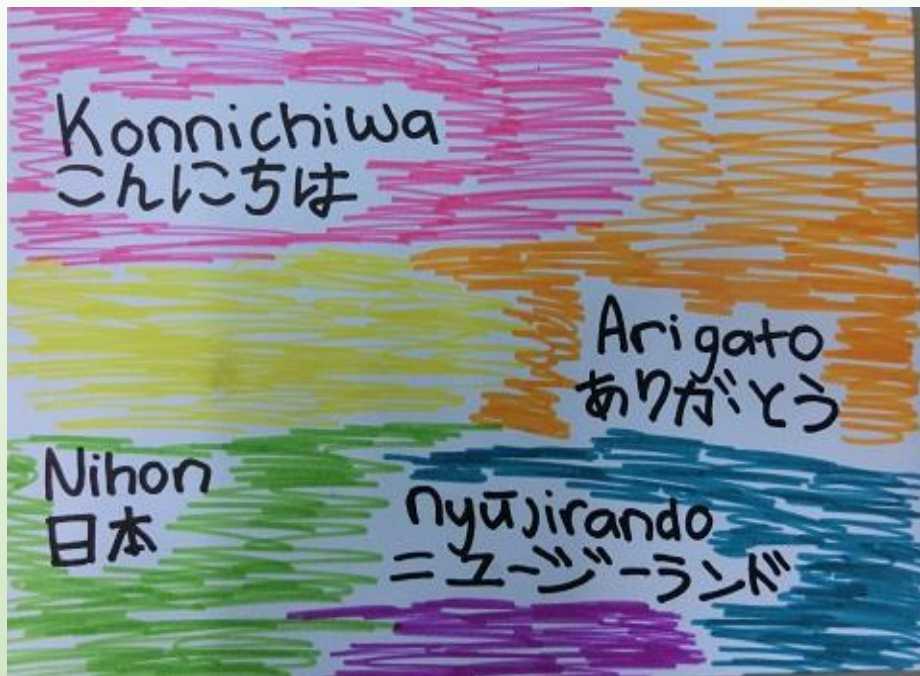 Konnichiwa
こんにちは
Arigato
ありがとう
Nihon
日本
nyūjirando
ニュージーランド